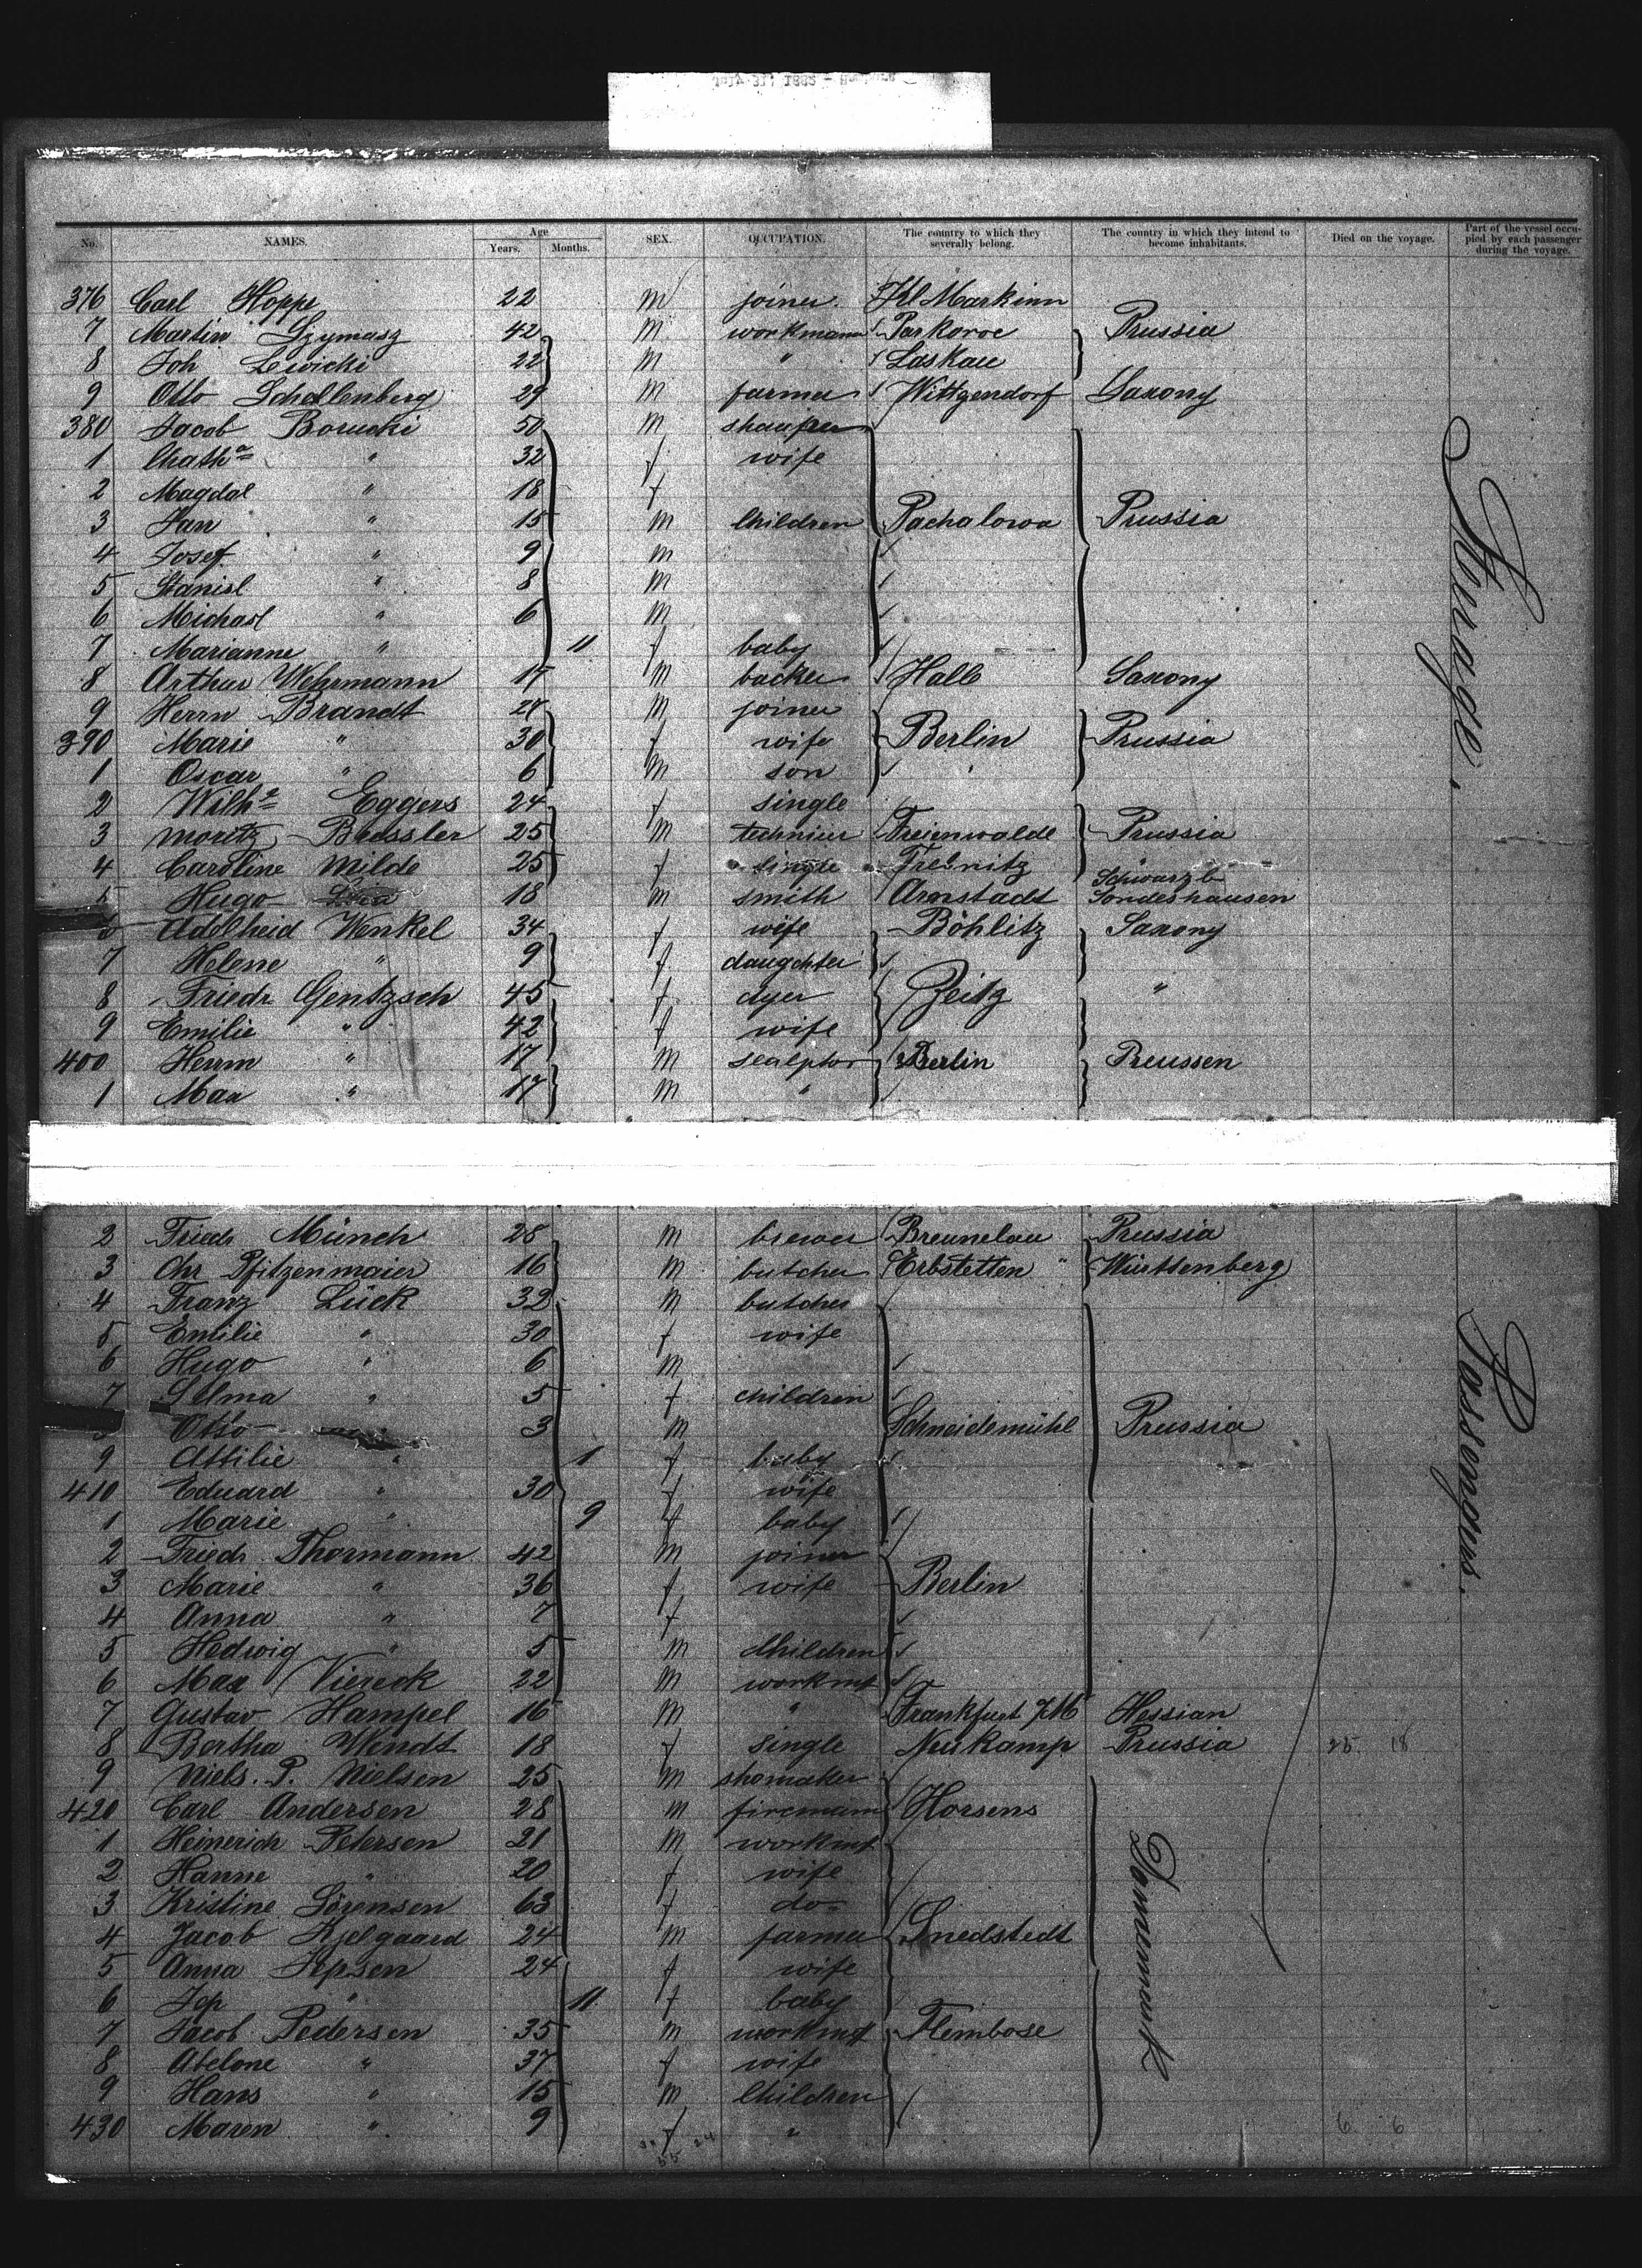 No. NAMES. Age Years. Months. SEX. OCCUPATION. The country to which they severally belong. The country in which they intend to become inhabitants. Died on the voyage. Part of the vessel occupied by each passenger during the voyage.
376 Carl Hoppe 22 m joiner Kl Markinn
7 Martin Szymasz 42 m workmann Parkoroe Prussia
8 Joh Lewicki 22 m " Laskau
9 Otto Schellenberg 29 m farmer Wittgendorf Saxony
380 Jacob Borucki 50 m
1 Cath a " 32 f wife
2 Magdal " 18 f
3 Jan " 15 m Children Pachalowa Prussia
4 Josef " 9 m
5 Stanisl " 8 m
6 Michael " 6 m
7 Marianne " 11 f baby
8 Arthur Wehrmann 17 m backer Halle Saxony
9 Herrn Brandt 27 m joiner
390 Marie " 30 f wife Berlin Prussia
1 Oscar " 6 m son
2 Wilh e Eggers 24 f single
3 Moritz Bressler 25 m technicer Freienwalde Prussia
4 Caroline Milde 25 f single Trebnitz
5 Hugo 18 m smith Arnstadt Schwarzb Sondeshausen
6 Adelheid Wenkel 34 f wife Böhlitz Saxony
7 Helene " 9 f daugchter
8 Friedr Gentzsch 45 f dyer Zeitz "
9 Emilie " 42 f wife
400 Herrm " 17 m scalptor Berlin Preussen
1 Max " 17 m "
2 Friedr Münch 28 m brewer Breunelau Prussia
3 Chr Pfitzenmaier 16 m butcher Erbstetten " Würtsenberg
4 Franz Lück 32 m butcher
5 Emilie " 30 f wife
6 Hugo " 6 m
7 Selma " 5 f children
Otto 3 m Schneidemühl Prussia
9 Attilie " 1 f baby
410 Eduard " 30 f wife
1 Marie " 9 f baby
2 Friedr Thormann 42 m joiner
3 Marie " 36 f wife Berlin
4 Anna " 7 f
5 Hedwig " 5 m Children
6 Max Viereck 22 m workmt
7 Gustav Hampel 16 m " Frankfurt /M Hessian
8 Bertha Wendt 18 f single Neukamp Prussia 25 18
9 Niels. P. Nielsen 25 m shomaker
420 Carl Andersen 28 m firemann Horsens
1 Heinerich Petersen 21 m workmt
2 Hanne " 20 f wife
3 Kristine Sörensen 63 f do
4 Jacob Kjelgaard 24 m farmer Snedstedt
5 Anna Jepsen 24 f wife
6 Jep " 11 f baby
7 Jacob Pedersen 35 m workmt Flembose
8 Abelone " 37 f wife
9 Hans " 15 m Children
430 Maren " 9 f " 6 6
Danemark
Steerage.
Passengers.